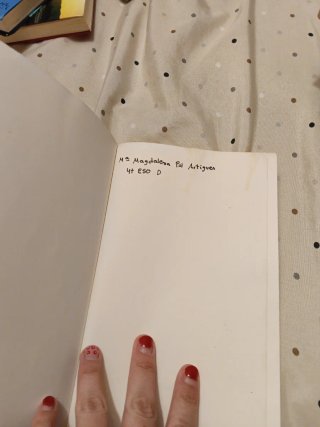 Mª Magdalena Pol Artigues
4t ESO D